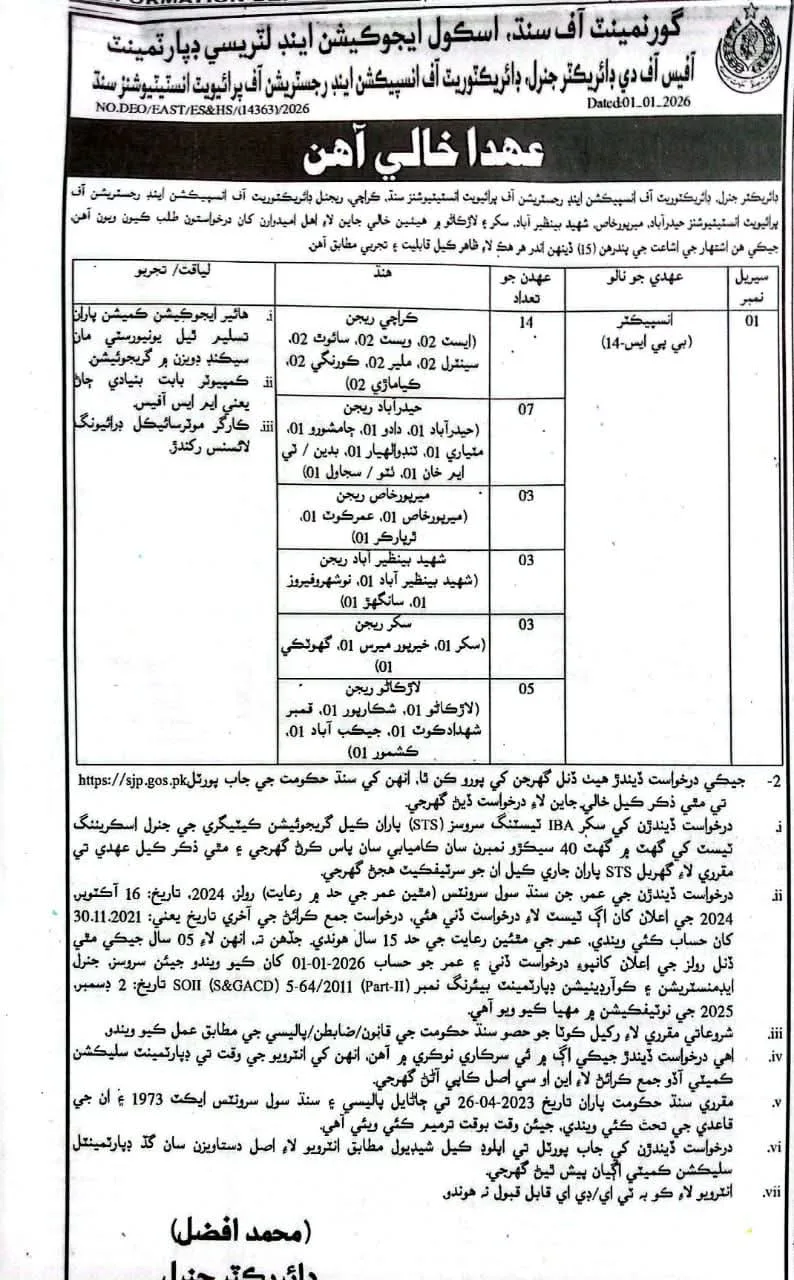 گورنمينٽ آف سنڌ، اسڪول ايجوڪيشن اينڊ لٽريسي ڊپارٽمينٽ
آفيس آف دي ڊائريڪٽر جنرل، ڊائريڪٽوريٽ آف انسپيڪشن اينڊ رجسٽريشن آف پرائيويٽ انسٽيٽيوشنز سنڌ
NO.DEO/EAST/ES&HS/(14363)/2026 Dated:01-01-2026
عهدا خالي آهن
ڊائريڪٽر جنرل، ڊائريڪٽوريٽ آف انسپيڪشن اينڊ رجسٽريشن آف پرائيويٽ انسٽيٽيوشنز سنڌ، ڪراچي، ريجنل ڊائريڪٽوريٽ آف انسپيڪشن اينڊ رجسٽريشن آف
پرائيويٽ انسٽيٽيوشنز حيدرآباد، ميرپورخاص، شهيد بينظير آباد، سکر ۽ لاڙڪاڻو ۾ هيٺين خالي جاين لاءِ اهل اميدوارن کان درخواستون طلب ڪيون ويون آهن.
جيڪي هن اشتهار جي اشاعت جي پندرهن (15) ڏينهن اندر هر هڪ لاءِ ظاهر ڪيل قابليت ۽ تجربي مطابق آهن.
سيريل نمبر
عهدي جو نالو
عهدن جو تعداد
هنڌ
لياقت/ تجربو
01
انسپيڪٽر
(بي پي ايس-14)
14
ڪراچي ريجن
(ايسٽ 02، ويسٽ 02، سائوٿ 02،
سينٽرل 02، ملير 02، ڪورنگي 02،
ڪياماڙي 02)
07
حيدرآباد ريجن
(حيدرآباد 01، دادو 01، ڄامشورو 01،
مٽياري 01، ٽنڊوالهيار 01، بدين / ٽي
ايم خان 01، ٺٽو / سجاول 01)
03
ميرپورخاص ريجن
(ميرپورخاص 01، عمرڪوٽ 01،
ٿرپارڪر 01)
03
شهيد بينظير آباد ريجن
(شهيد بينظير آباد 01، نوشهروفيروز
01، سانگهڙ 01)
03
سکر ريجن
(سکر 01، خيرپور ميرس 01، گهوٽڪي
01)
05
لاڙڪاڻو ريجن
(لاڙڪاڻو 01، شڪارپور 01، قمبر
شهدادڪوٽ 01، جيڪب آباد 01،
ڪشمور 01)
i. هائير ايجوڪيشن ڪميشن پاران
تسليم ٿيل يونيورسٽي مان
سيڪنڊ ڊويزن ۾ گريجوئيشن.
ii. ڪمپيوٽر بابت بنيادي ڄاڻ
يعني ايم ايس آفيس.
iii. ڪارگر موٽرسائيڪل ڊرائيونگ
لائسنس رکندڙ.
2- جيڪي درخواست ڏيندڙ هيٺ ڏنل گهرجن کي پورو ڪن ٿا، انهن کي سنڌ حڪومت جي جاب پورٽل https://sjp.gos.pk
تي مٿي ذڪر ڪيل خالي جاين لاءِ درخواست ڏيڻ گهرجي.
i. درخواست ڏيندڙن کي سکر IBA ٽيسٽنگ سروسز (STS) پاران ڪيل گريجوئيشن ڪيٽيگري جي جنرل اسڪريننگ
ٽيسٽ کي گهٽ ۾ گهٽ 40 سيڪڙو نمبرن سان ڪاميابي سان پاس ڪرڻ گهرجي ۽ مٿي ذڪر ڪيل عهدي تي
مقرري لاءِ گهربل STS پاران جاري ڪيل ان جو سرٽيفڪيٽ هجڻ گهرجي.
ii. درخواست ڏيندڙن جي عمر، جن سنڌ سول سرونٽس (مٿين عمر جي حد ۾ رعايت) رولز، 2024، تاريخ: 16 آڪٽوبر،
2024 جي اعلان کان اڳ ٽيسٽ لاءِ درخواست ڏني هئي، درخواست جمع ڪرائڻ جي آخري تاريخ يعني: 30.11.2021
کان حساب ڪئي ويندي، عمر جي مٿئين رعايت جي حد 15 سال هوندي. جڏهن ته، انهن لاءِ 05 سال جيڪي مٿي
ڏنل رولز جي اعلان کانپوءِ درخواست ڏني ۽ عمر جو حساب 01-01-2026 کان ڪيو ويندو جيئن سروسز، جنرل
ايڊمنسٽريشن ۽ ڪوآرڊينيشن ڊپارٽمينٽ بيئرنگ نمبر SOII (S&GACD) 5-64/2011 (Part-II) تاريخ: 2 ڊسمبر،
2025 جي نوٽيفڪيشن ۾ مهيا ڪيو ويو آهي.
iii. شروعاتي مقرري لاءِ رکيل ڪوٽا جو حصو سنڌ حڪومت جي قانون/ضابطن/پاليسي جي مطابق عمل ڪيو ويندو.
iv. اهي درخواست ڏيندڙ جيڪي اڳ ۾ ئي سرڪاري نوڪري ۾ آهن، انهن کي انٽرويو جي وقت تي ڊپارٽمينٽ سليڪشن
ڪميٽي آڏو جمع ڪرائڻ لاءِ اين او سي اصل ڪاپي آڻڻ گهرجي.
v. مقرري سنڌ حڪومت پاران تاريخ 26-04-2023 تي ڄاڻايل پاليسي ۽ سنڌ سول سرونٽس ايڪٽ 1973 ۽ ان جي
قاعدي جي تحت ڪئي ويندي، جيئن وقت بوقت ترميم ڪئي ويئي آهي.
vi. درخواست ڏيندڙن کي جاب پورٽل تي اپلوڊ ڪيل شيڊيول مطابق انٽرويو لاءِ اصل دستاويزن سان گڏ ڊپارٽمينٽل
سليڪشن ڪميٽي اڳيان پيش ٿيڻ گهرجي.
vii. انٽرويو لاءِ ڪو به ٽي اي/ڊي اي قابل قبول نه هوندو.
(محمد افضل)
ڊائريڪٽر جنرل